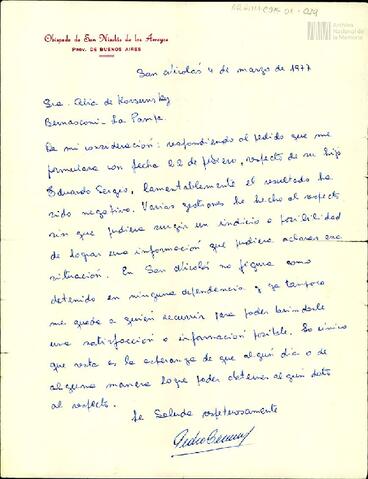 Archivo Nacional de la Memoria
Obispado de San Nicolás de los Arroyos
Prov. de Buenos Aires
San Nicolás 4 de marzo de 1977
Sra. de Kossunsky
Bernasconi - La Pampa.
De mi consideración: respondiendo al pedido que me
formulara con fecha 22 de febrero, respecto de su hijo
Eduardo Sergio, lamentablemente el resultado ha
sido negativo. Varias gestiones he hecho al respecto
sin que pudiera surgir un indicio o posibilidad
de lograr una información que pudiera aclarar esa
situación. En San Nicolás no figura como
detenido en ninguna dependencia y ya tampoco
me queda a quién recurrir para poder brindarle
una satisfacción o información posible. Lo único
que resta es la esperanza de que algún día o de
alguna manera logre poder obtener algún dato
al respecto.
Le saluda respetuosamente